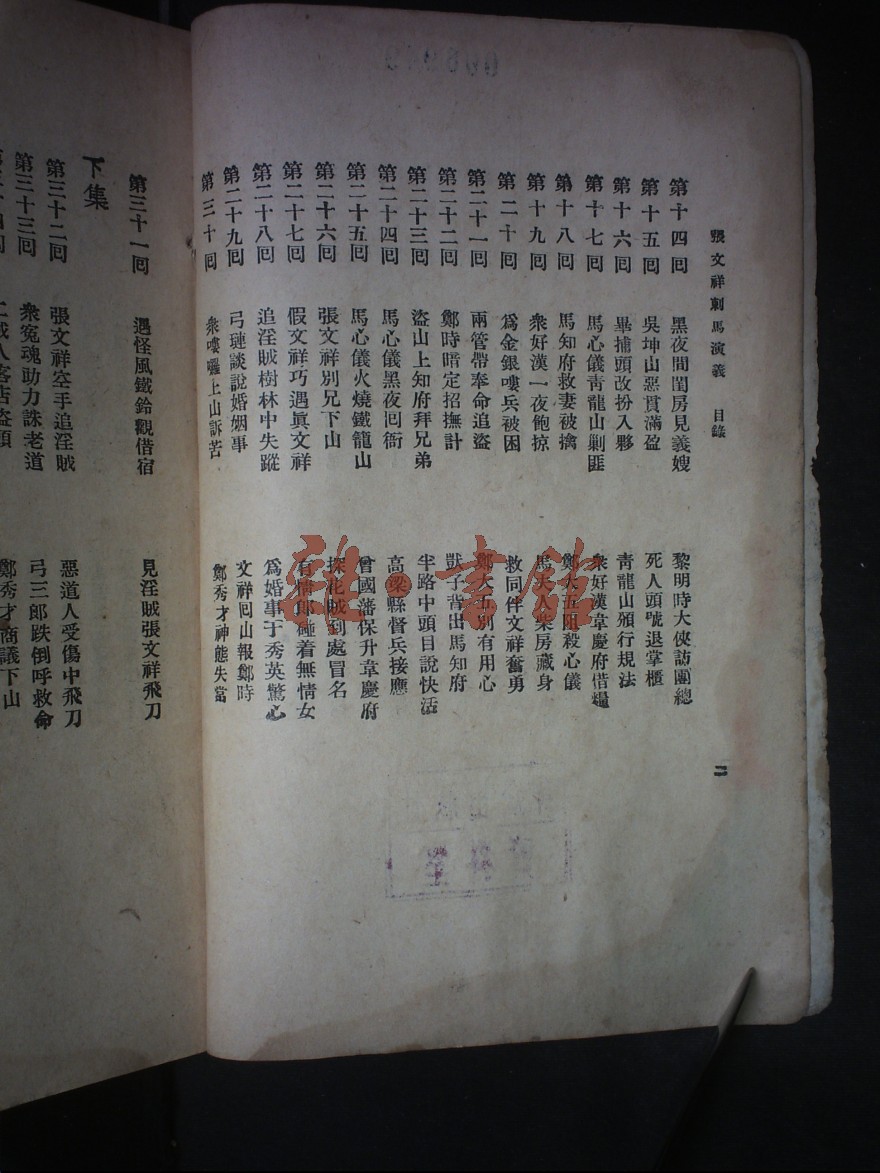 張文祥刺馬演義 目錄 二
第十四回 黑夜間閨房見義嫂 黎明時大俠訪團總
第十五回 吳坤山惡貫滿盈 死人頭唬退掌櫃
第十六回 畢捕頭改扮入夥 青龍山頒行規法
第十七回 馬心儀青龍山剿匪 衆好漢韋慶府借糧
第十八回 馬知府救妻被擒 鄭大五阻殺心儀
第十九回 衆好漢一夜飽掠 馬夫人柴房藏身
第二十回 爲金銀嘍兵被困 救同伴文祥奮勇
第二十一回 兩管帶奉命追盜 鄭大五別有用心
第二十二回 鄭時暗定招撫計 獃子背出馬知府
第二十三回 盜山上知府拜兄弟 半路中頭目說快活
第二十四回 馬心儀黑夜回衙 高梁縣督兵接應
第二十五回 馬心儀火燒鐵籠山 曾國藩保升韋慶府
第二十六回 張文祥別兄下山 探花賊到處冒名
第二十七回 假文祥巧遇眞文祥 有情郎碰着無情女
第二十八回 追淫賊樹林中失蹤 爲婚事于秀英驚心
第二十九回 弓璉談說婚姻事 文祥回山報鄭時
第三十回 衆嘍囉上山訴苦 鄭秀才神態失當
第三十一回 遇怪風鐵鈴觀借宿 見淫賊張文祥飛刀
下集
第三十二回 張文祥空手追淫賊 惡道人受傷中飛刀
第三十三回 衆冤魂助力誅老道 弓三郎跌倒呼救命
鄭秀才商議下山
雜·書館